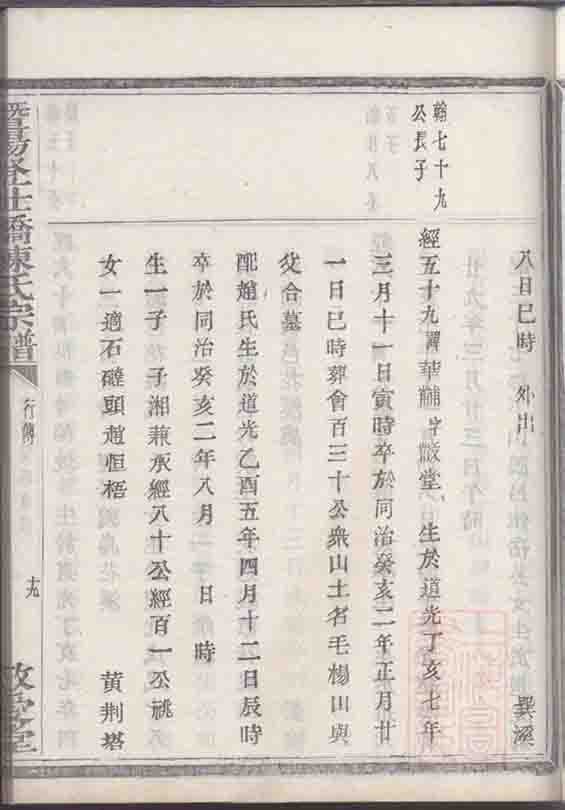 八日巳時 外出 巽溪
翰七十九
公長子
經五十九諱華黼字黻堂 生於道光丁亥七年
三月十一日寅時卒於同治癸亥二年正月廿
一日巳時葬會百三十公衆山土名毛楊山與
父合墓
配趙氏生於道光乙酉五年四月十二日辰時
卒於同治癸亥二年八月 日 時
生一子 子湘兼承經八十公經百一公祧
女一適石礎頭趙恒梧 黃荆塔
陳氏宗譜
行傳
十九